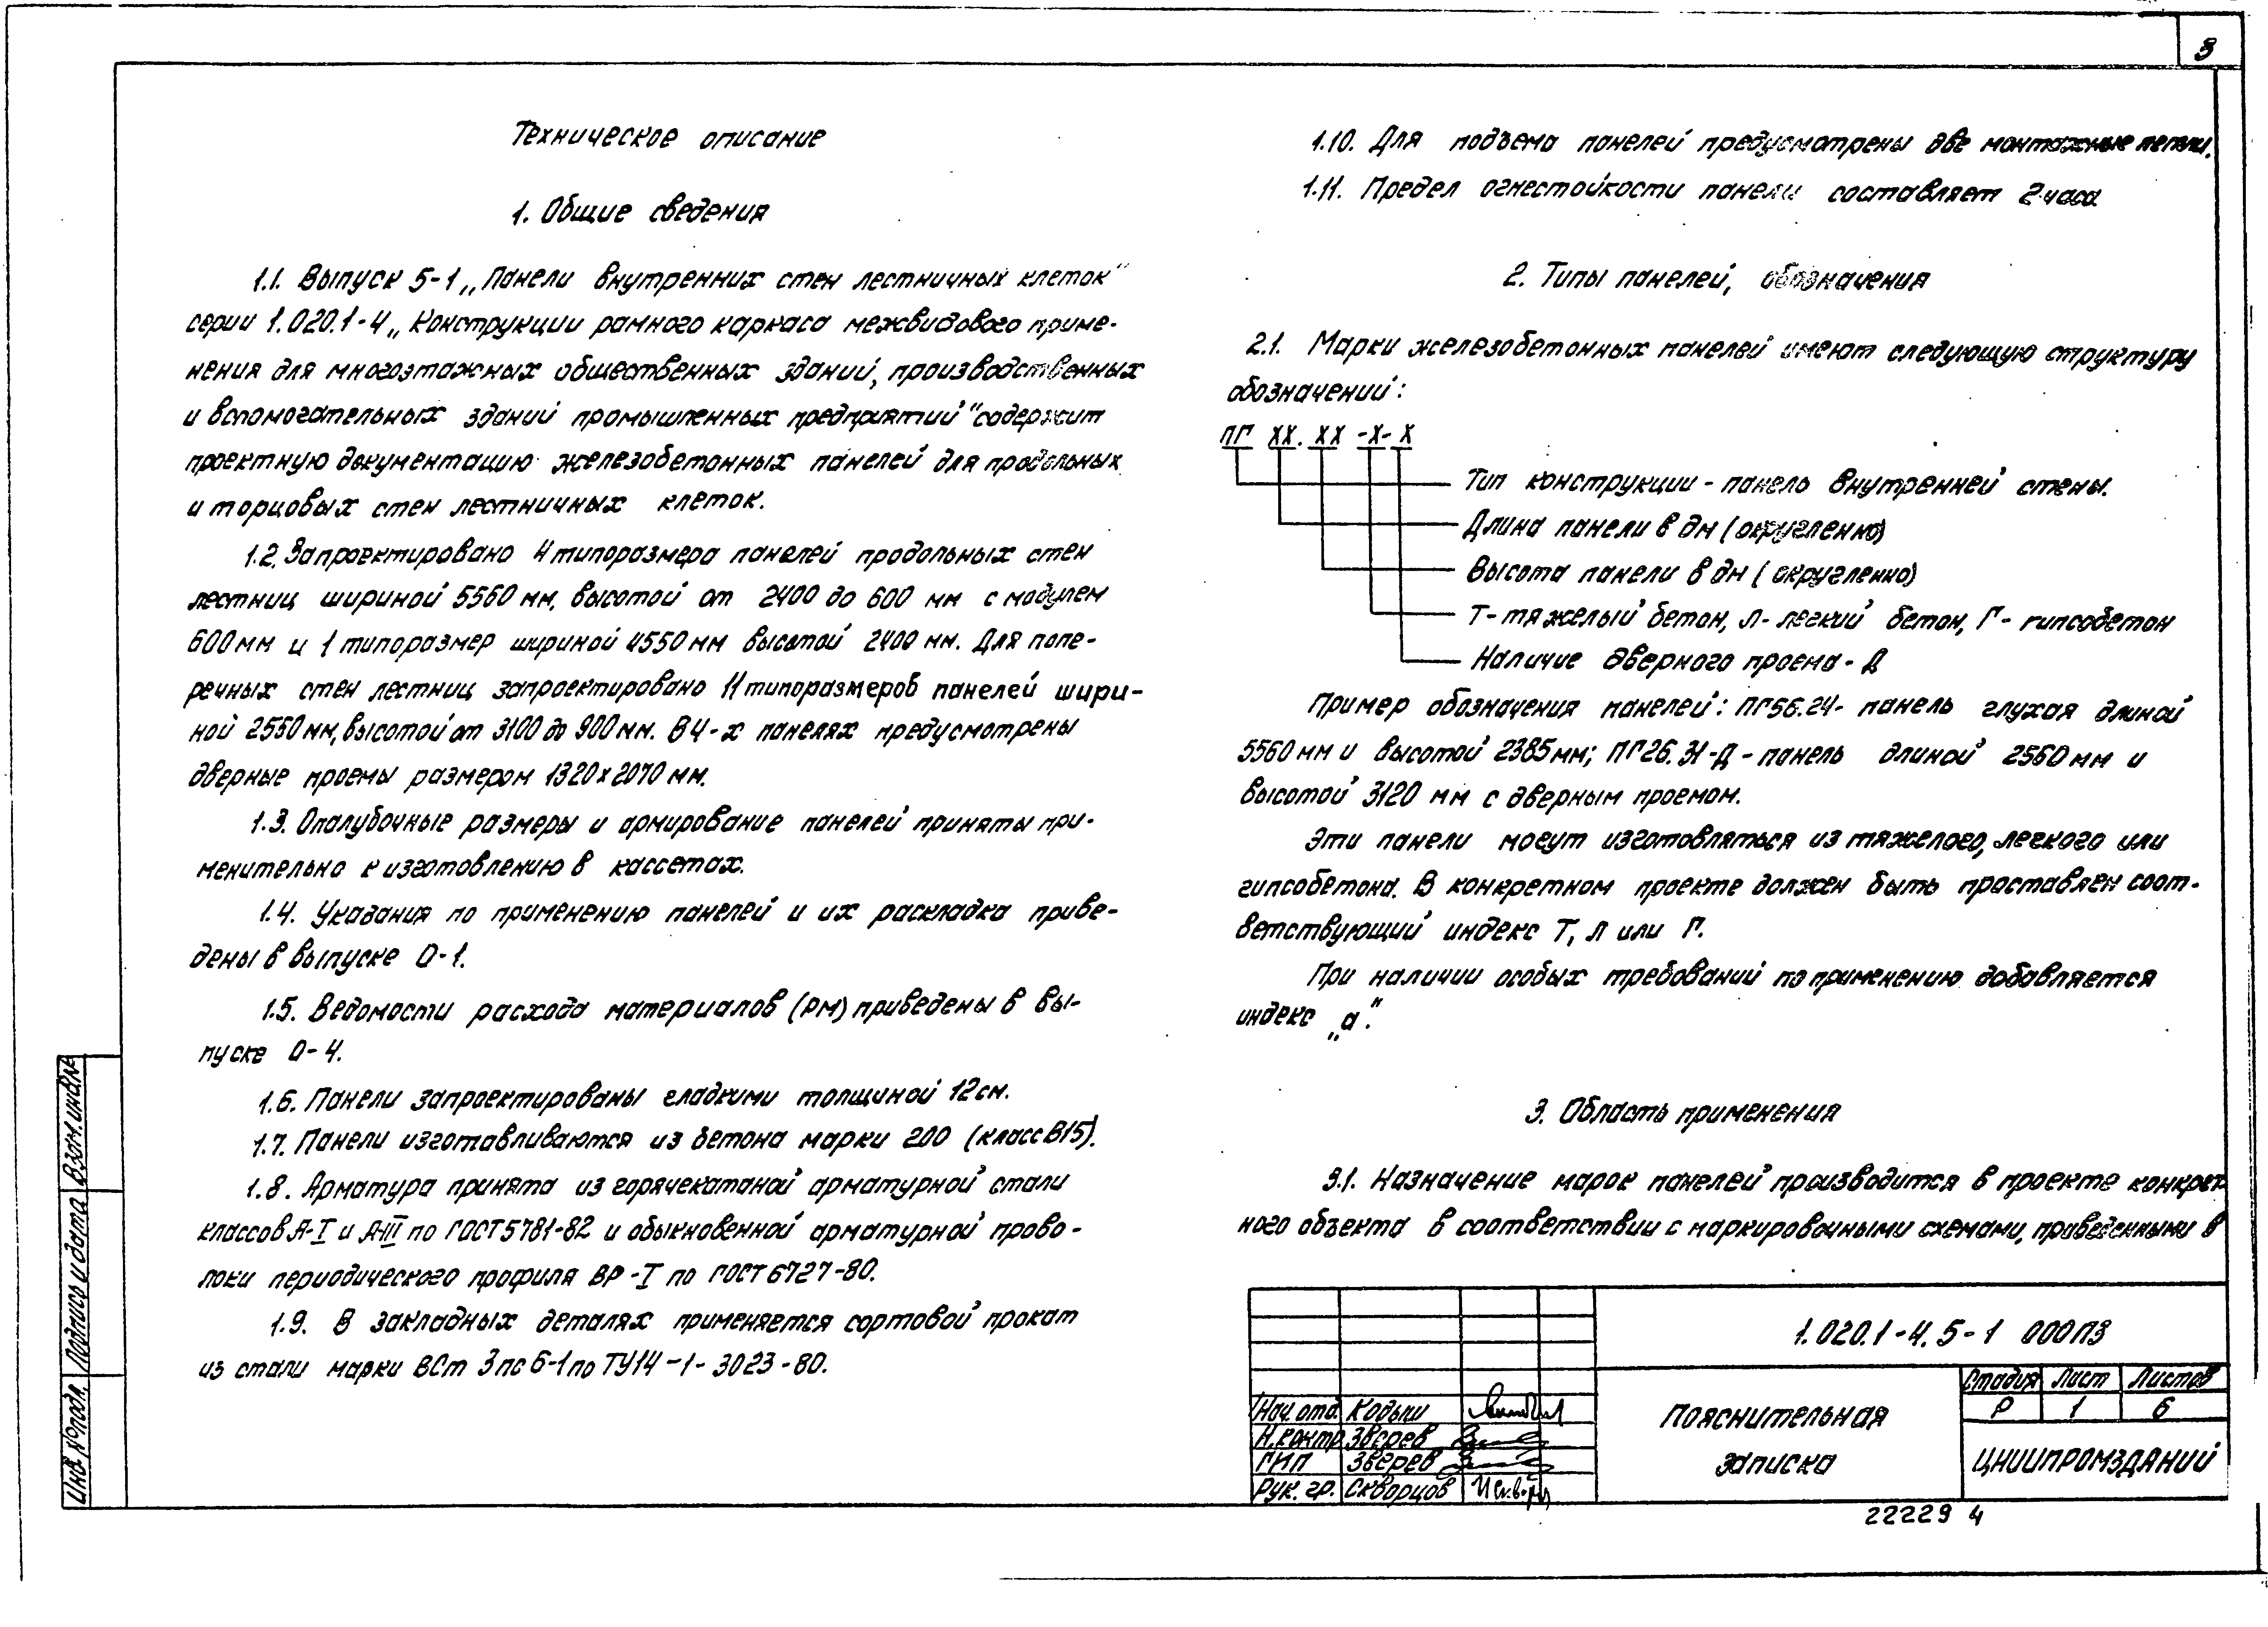 3
Техническое описание
1. Общие сведения
1.1. Выпуск 5-1 „Панели внутренних стен лестничных клеток"
серии 1.020.1-4 „Конструкции рамного каркаса межвидового приме-
нения для многоэтажных общественных зданий, производственных
и вспомогательных зданий промышленных предприятий" содержит
проектную документацию железобетонных панелей для продольных
и торцовых стен лестничных клеток.
1.2. Запроектировано 4 типоразмера панелей продольных стен
лестниц шириной 5560 мм, высотой от 2400 до 600 мм с модулем
600 мм и 1 типоразмер шириной 4550 мм высотой 2400 мм. Для попе-
речных стен лестниц запроектировано 11 типоразмеров панелей шири-
ной 2550 мм, высотой от 3100 до 900 мм. В 4-х панелях предусмотрены
дверные проемы размером 1320х2070 мм.
1.3. Опалубочные размеры и армирование панелей приняты при-
менительно к изготовлению в кассетах.
1.4. Указания по применению панелей и их раскладка приве-
дены в выпуске 0-1.
1.5. Ведомости расхода материалов (РМ) приведены в вы-
пуске 0-4.
1.6. Панели запроектированы гладкими толщиной 12 см.
1.7. Панели изготавливаются из бетона марки 200 (класс В15).
1.8. Арматура принята из горячекатаной арматурной стали
классов А-I и А-III по ГОСТ 5781-82 и обыкновенной арматурной прово-
локи периодического профиля ВР-I по ГОСТ 6727-80.
1.9. В закладных деталях применяется сортовой прокат
из стали марки ВСт 3 пс 6-1 по ТУ14-1-3023-80.
1.10. Для подъема панелей предусмотрены две монтажные петли.
1.11. Предел огнестойкости панели составляет 2 часа
2. Типы панелей, обозначения
2.1. Марки железобетонных панелей имеют следующую структуру
обозначений:
ПГ ХХ. ХХ -Х- Х
Тип конструкции - панель внутренней стены.
Длина панели в дм (округленно)
Высота панели в дм (округленно)
Т- тяжелый бетон, Л- легкий бетон, Г- гипсобетон
Наличие дверного проема - Д
Пример обозначения панелей: ПГ56.24- панель глухая длиной
5560 мм и высотой 2385 мм; ПГ26.31-Д - панель длиной 2560 мм и
высотой 3120 мм с дверным проемом.
Эти панели могут изготовляться из тяжелого, легкого или
гипсобетона. В конкретном проекте должен быть проставлен соот-
ветствующий индекс Т, Л или Г.
При наличии особых требований по применению добавляется
индекс „а".
3. Область применения
3.1. Назначение марок панелей производится в проекте конкрет-
ного объекта в соответствии с маркировочными схемами, приведенными в
1.020.1-4.5-1 000ПЗ
Пояснительная
записка
Стадия Лист Листов
Р 1 6
ЦНИИПРОМЗДАНИЙ
Нач. отд. Кодыш
Н.контр. Зверев
ГИП Зверев
Рук. гр. Скворцов
22229 4
Взам. инв.№
Подпись и дата
Инв. №подл.